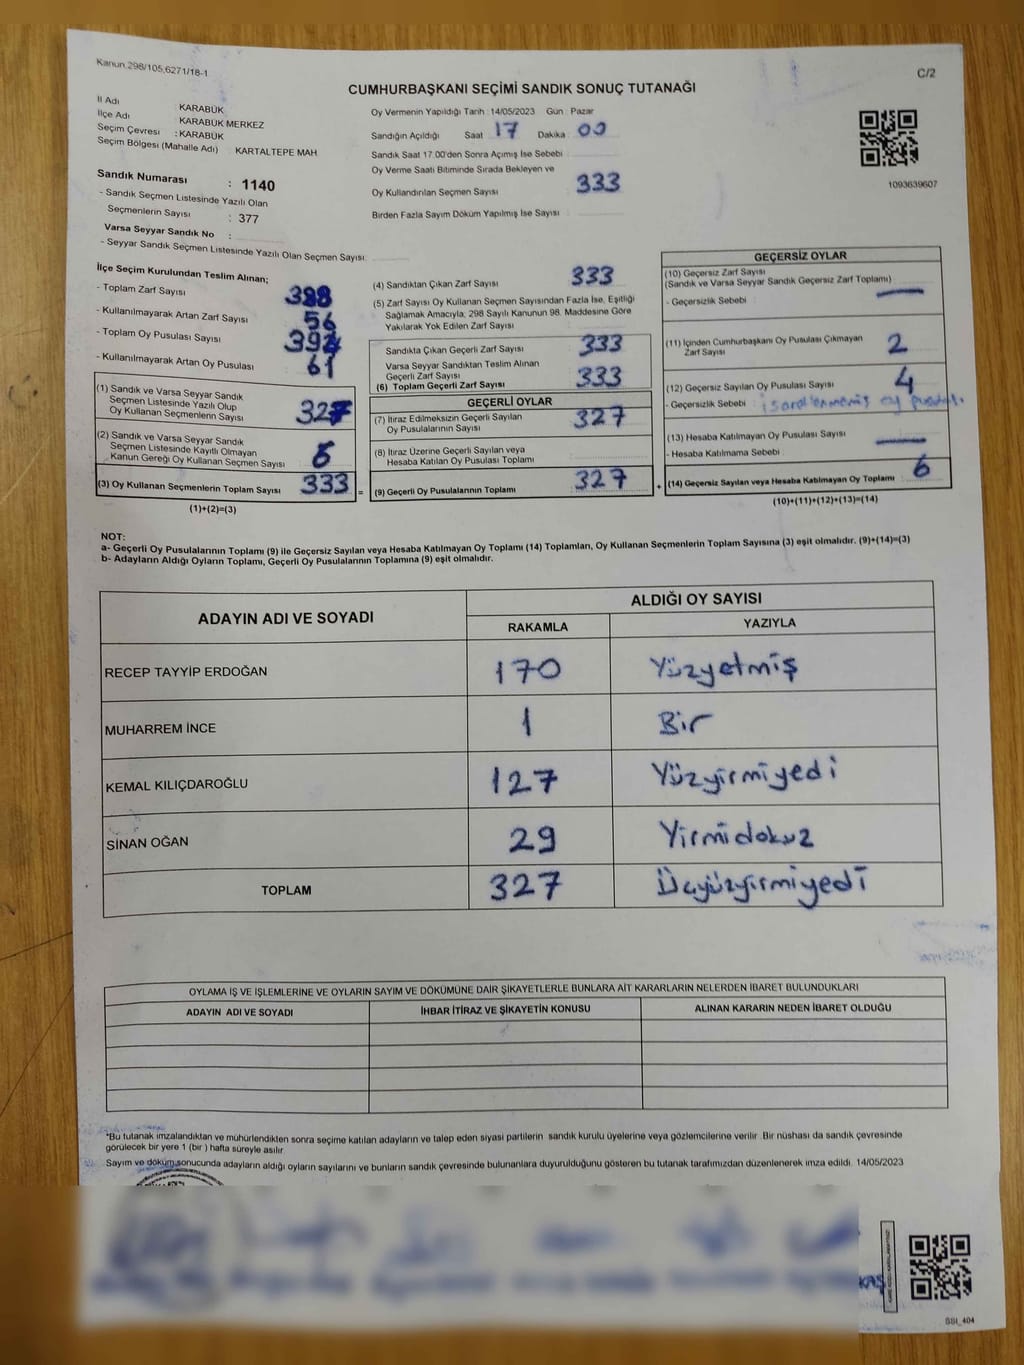 Kanun 298/105,6271/18-1
C/2
CUMHURBAŞKANI SEÇİMİ SANDIK SONUÇ TUTANAĞI
İl Adı : KARABÜK
İlçe Adı : KARABÜK MERKEZ
Seçim Çevresi : KARABÜK
Seçim Bölgesi (Mahalle Adı) KARTALTEPE MAH
Sandık Numarası : 1140
- Sandık Seçmen Listesinde Yazılı Olan
Seçmenlerin Sayısı : 377
Varsa Seyyar Sandık No :
- Seyyar Sandık Seçmen Listesinde Yazılı Olan Seçmen Sayısı
Oy Vermenin Yapıldığı Tarih : 14/05/2023 Gün : Pazar
Sandığın Açıldığı Saat 17 Dakika 00
Sandık Saat 17.00'den Sonra Açımış İse Sebebi
Oy Verme Saati Bitiminde Sırada Bekleyen ve
Oy Kullandırılan Seçmen Sayısı 333
Birden Fazla Sayım Döküm Yapılmış İse Sayısı
1093639607
İlçe Seçim Kurulundan Teslim Alınan;
- Toplam Zarf Sayısı
- Kullanılmayarak Artan Zarf Sayısı 56
- Toplam Oy Pusulası Sayısı
- Kullanılmayarak Artan Oy Pusulası 61
(1) Sandık ve Varsa Seyyar Sandık
Seçmen Listesinde Yazılı Olup
Oy Kullanan Seçmenlerin Sayısı 327
(2) Sandık ve Varsa Seyyar Sandık
Seçmen Listesinde Kayıtlı Olmayan
Kanun Gereği Oy Kullanan Seçmen Sayısı
(3) Oy Kullanan Seçmenlerin Toplam Sayısı 333 =
(1)+(2)=(3)
(4) Sandıktan Çıkan Zarf Sayısı 333
(5) Zarf Sayısı Oy Kullanan Seçmen Sayısından Fazla İse, Eşitliği
Sağlamak Amacıyla, 298 Sayılı Kanunun 98. Maddesine Göre
Yakılarak Yok Edilen Zarf Sayısı
Sandıkta Çıkan Geçerli Zarf Sayısı 333
Varsa Seyyar Sandıktan Teslim Alınan
Geçerli Zarf Sayısı
(6) Toplam Geçerli Zarf Sayısı 333
GEÇERLİ OYLAR
(7) İtiraz Edilmeksizin Geçerli Sayılan
Oy Pusulalarının Sayısı 327
(8) İtiraz Üzerine Geçerli Sayılan veya
Hesaba Katılan Oy Pusulası Toplamı
(9) Geçerli Oy Pusulalarının Toplamı 327 +
GEÇERSİZ OYLAR
(10) Geçersiz Zarf Sayısı
(Sandık ve Varsa Seyyar Sandık Geçersiz Zarf Toplamı)
- Geçersizlik Sebebi
(11) İçinden Cumhurbaşkanı Oy Pusulası Çıkmayan
Zarf Sayısı 2
(12) Geçersiz Sayılan Oy Pusulası Sayısı 4
- Geçersizlik Sebebi : işaretlenmemiş oy pusulası
(13) Hesaba Katılmayan Oy Pusulası Sayısı
- Hesaba Katılmama Sebebi
(14) Geçersiz Sayılan veya Hesaba Katılmayan Oy Toplamı 6
(10)+(11)+(12)+(13)=(14)
NOT:
a- Geçerli Oy Pusulalarının Toplamı (9) ile Geçersiz Sayılan veya Hesaba Katılmayan Oy Toplamı (14) Toplamları, Oy Kullanan Seçmenlerin Toplam Sayısına (3) eşit olmalıdır. (9)+(14)=(3)
b- Adayların Aldığı Oyların Toplamı, Geçerli Oy Pusulalarının Toplamına (9) eşit olmalıdır.
ADAYIN ADI VE SOYADI
ALDIĞI OY SAYISI
RAKAMLA YAZIYLA
RECEP TAYYİP ERDOĞAN 170 Yüzyetmiş
MUHARREM İNCE 1 Bir
KEMAL KILIÇDAROĞLU 127 Yüzyirmiyedi
SİNAN OĞAN 29 Yirmidokuz
TOPLAM 327 Üçyüzyirmiyedi
OYLAMA İŞ VE İŞLEMLERİNE VE OYLARIN SAYIM VE DÖKÜMÜNE DAİR ŞİKAYETLERLE BUNLARA AİT KARARLARIN NELERDEN İBARET BULUNDUKLARI
ADAYIN ADI VE SOYADI İHBAR İTİRAZ VE ŞİKAYETİN KONUSU ALINAN KARARIN NEDEN İBARET OLDUĞU
*Bu tutanak imzalandıktan ve mühürlendikten sonra seçime katılan adayların ve talep eden siyasi partilerin sandık kurulu üyelerine veya gözlemcilerine verilir. Bir nüshası da sandık çevresinde
görülecek bir yere 1 (bir) hafta süreyle asılır
Sayım ve döküm sonucunda adayların aldığı oyların sayılarını ve bunların sandık çevresinde bulunanlara duyurulduğunu gösteren bu tutanak tarafımızdan düzenlenerek imza edildi. 14/05/2023
SSI_404